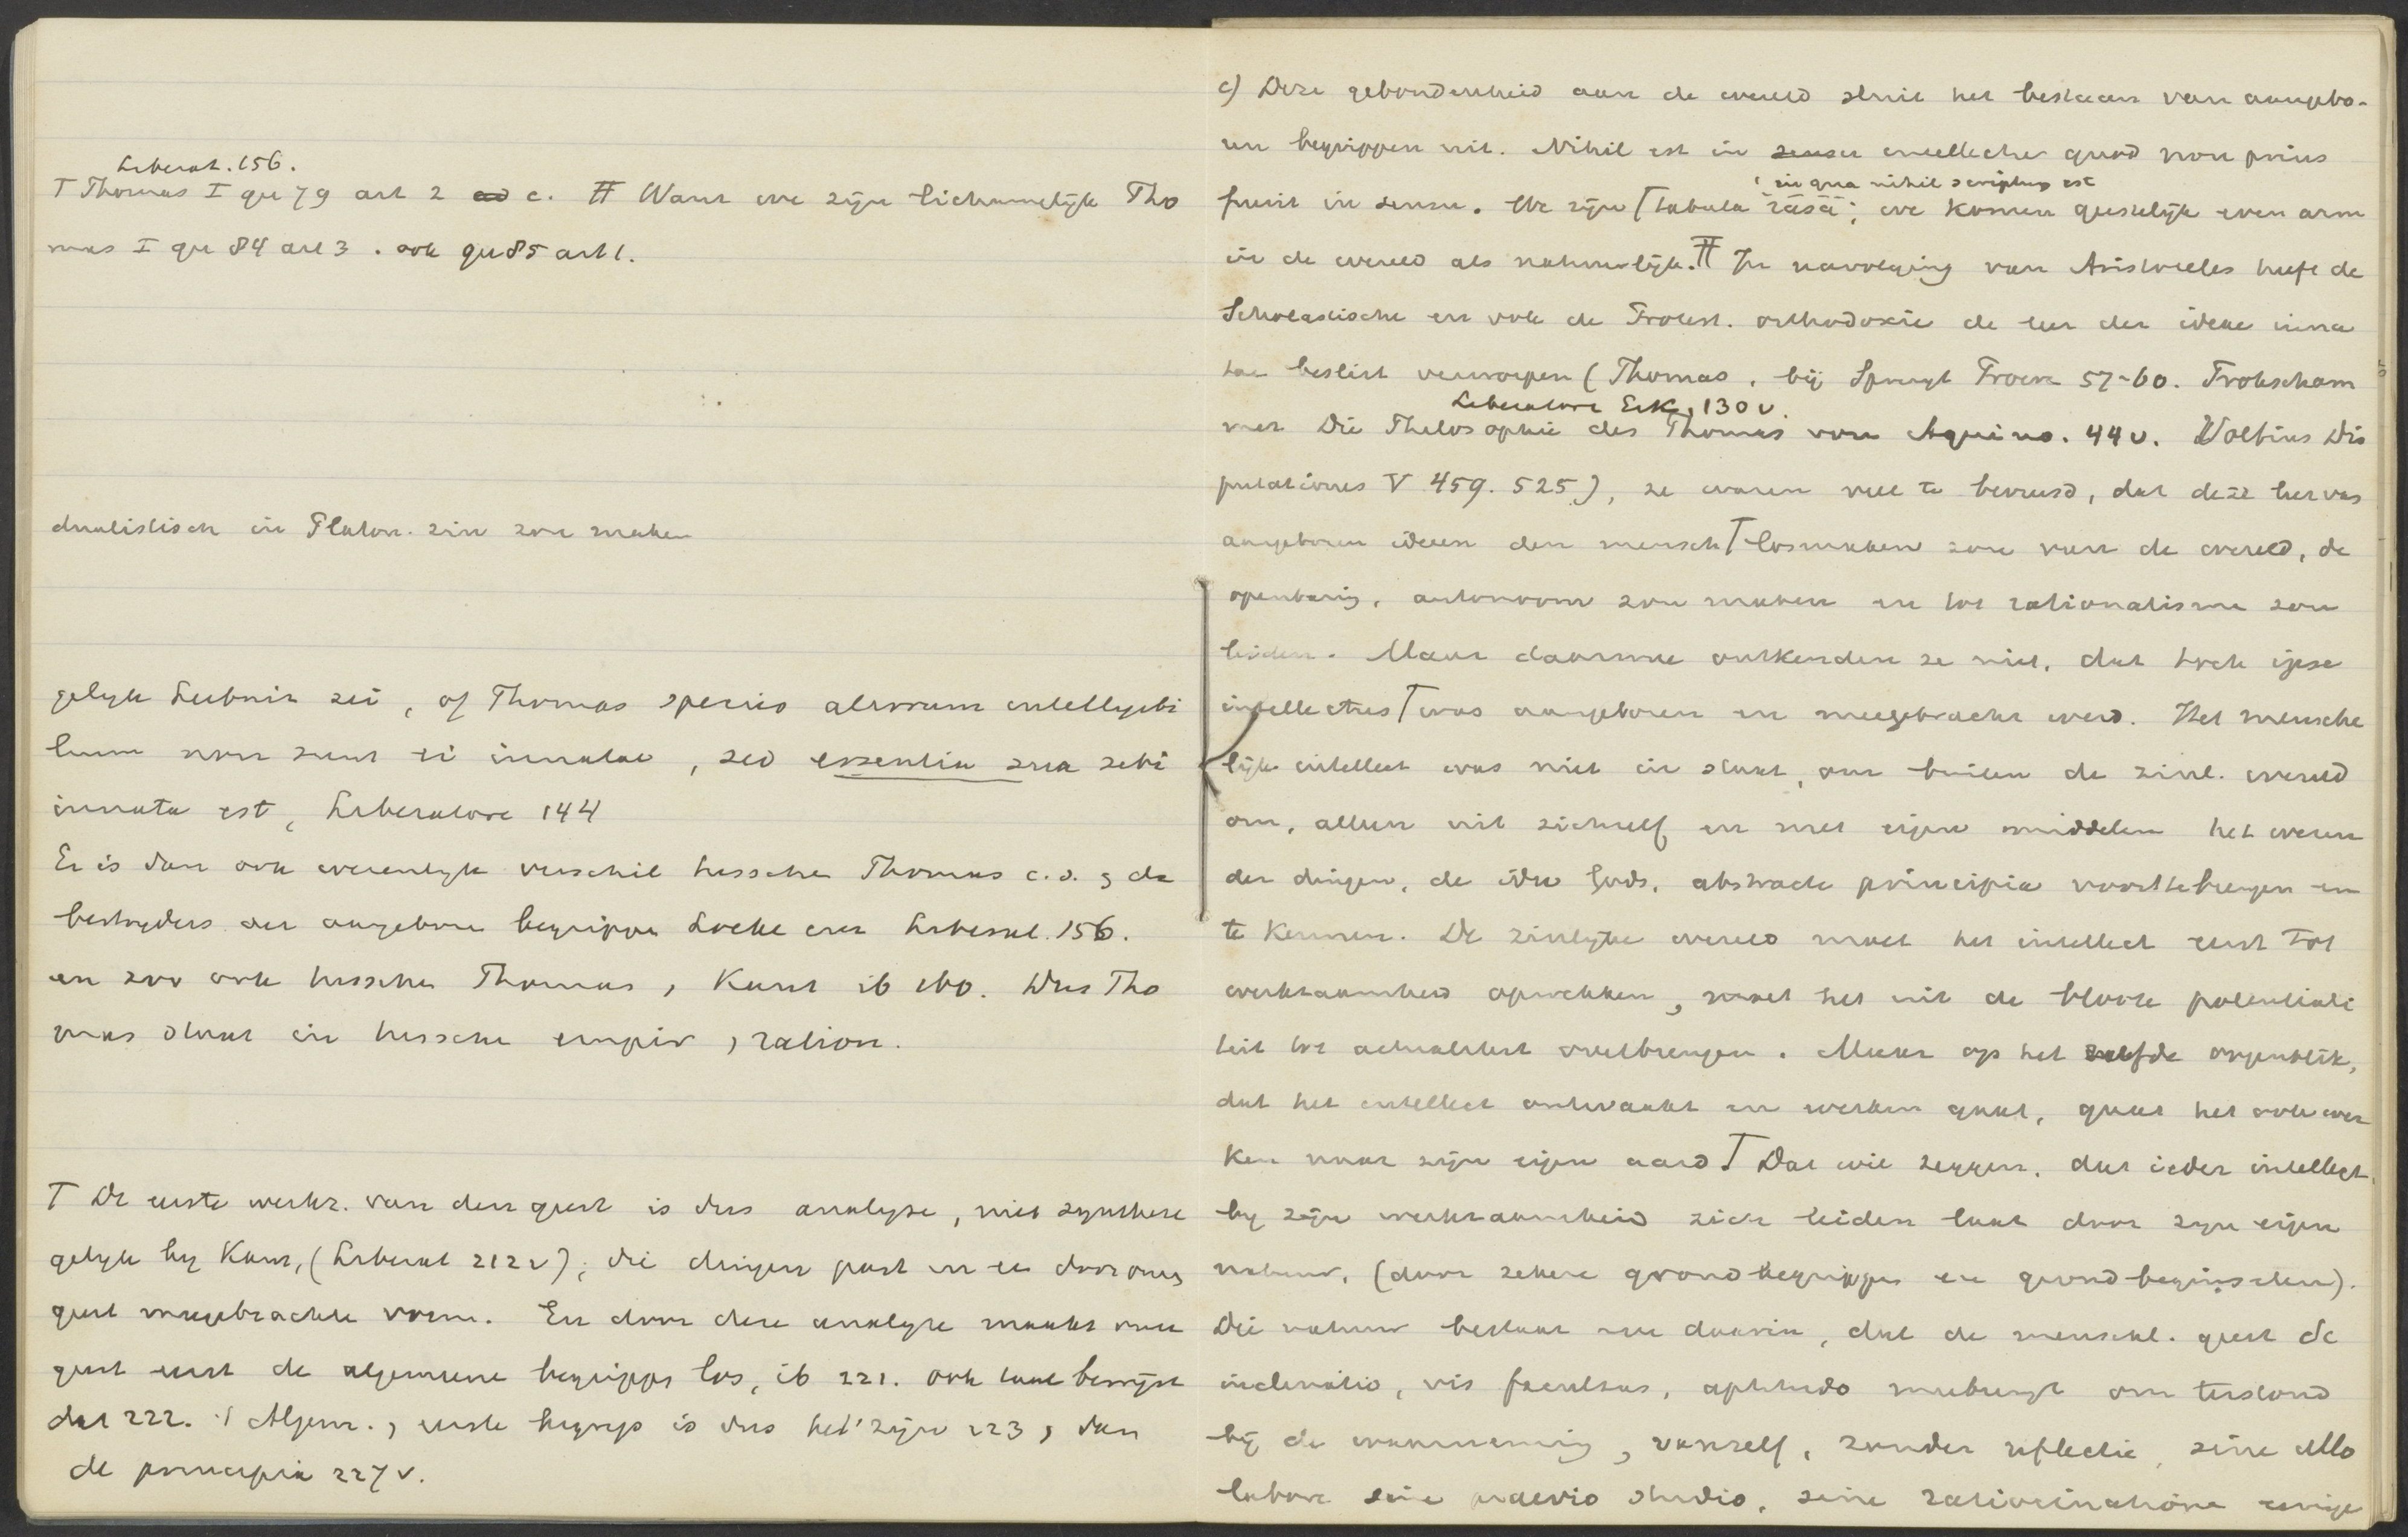 Liberat. 156.
T Thomas I qu 79 art 2 ad c. TT Want we zijn lichamelijk Tho
mas I qu 84 art 3. ook qu 85 art 1.
dualistisch in Platon. zin zou maken
gelijk Leibniz zei, of Thomas species aliorum intelligibi
lium non sunt ei innatae, sed essentia sua sibi
innata est, Liberatore 144
Er is dan ook wezenlijk verschil tusschen Thomas c.s. & de
bestrijders der aangeboren begrippen Locke enz Liberat. 156.
en zoo ook tusschen Thomas, Kant ib 160. Dus Tho
mas staat in tusschen empir, ration.
T De eerste werkz. van den geest is dus analyse, niet synthese
gelijk by Kant, (Liberat 212v), die dingen past in de door onzen
geest meegebrachte vorm. En door deze analyse maakt onze
geest eerst de algemeene begrippen los, ib 221. ook taal bewijst
dat 222. 't Algem., eerste begrip is dus het 'zijn 223, dan
de principia 227 v.
c) Deze gebondenheid aan de wereld sluit het bestaan van aangebo-
ren begrippen uit. Nihil est in sensu intellectu quod non prius
in qua nihil scriptum est
fuerit in sensu. We zijn T tabula rasa; we komen geestelijk even arm
in de wereld als natuurlijk. TT In navolging van Aristoteles heeft de
Scholastische en ook de Protest. orthodoxie de leer der ideae inna
tae beslist verworpen (Thomas, bij Spruyt Proeve 57-60. Frohscham
Liberatore Erk, 130 v.
mer Die Philosophie des Thomas von Aquino. 44 v. Voetius Dis
putationes V 459. 525), ze waren veel te bevreesd, dat deze leer van
aangeboren ideeen den mensch T losmaken zou van de wereld, de
openbaring, autonoom zou maken en tot rationalisme zou
leiden. Maar daarmee ontkenden ze niet, dat toch ipse
intellectus T was aangeboren en meegebracht werd. Het mensche
lijk intellect was niet in staat, om buiten de zinl. wereld
om, alleen uit zichzelf en met eigen middelen het wezen
der dingen, de idee Gods, abstracte principia voorttebrengen en
te kennen. De zinlijke wereld moet het intellect eerst tot
werkzaamheid opwekken, moet het uit de bloote potentiali
teit tot actualiteit overbrengen. Maar op het zelfde oogenblik,
dat het intellect ontwaakt en werken gaat, gaat het ook wer
ken naar zijn eigen aard T Dat wil zeggen, dat ieder intellect
by zijn werkzaamheid zich leiden laat door zijn eigen
natuur, (door zekere grondbegrippen en grondbeginselen).
Die natuur bestaat nu daarin, dat de menschl. geest de
inclinatio, vis facultas, aptitudo meebrengt om terstond
bij de waarneming, vanzelf, zonder reflectie, sine ullo
labore sine praevio studio, sine ratiocinatione eenige